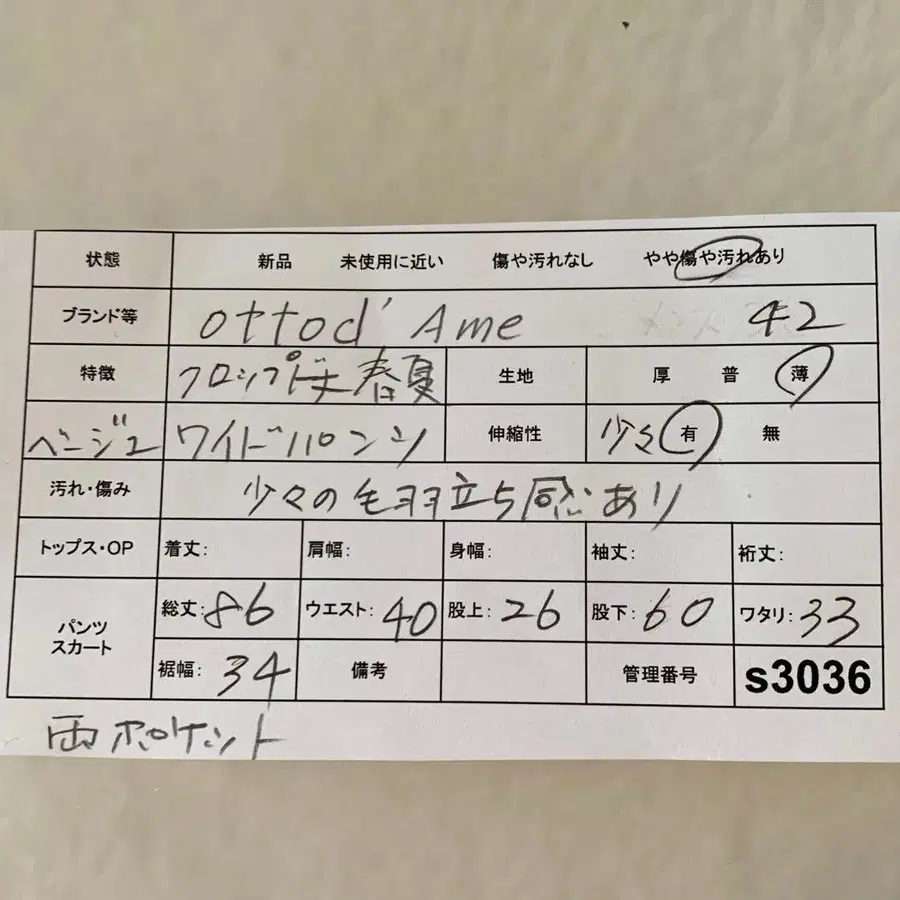 状態 新品 未使用に近い 傷や汚れなし やや傷や汚れあり
ブランド等 ottod'Ame 42
特徴 クロップド丈 春夏 生地 厚 普 薄
ベージュ ワイドパンツ 伸縮性 少々 有 無
汚れ・傷み 少々の毛羽立ち感あり
トップス・OP 着丈: 肩幅: 身幅: 袖丈: 裄丈:
パンツ スカート 総丈: 86 ウエスト: 40 股上: 26 股下: 60 ワタリ: 33
裾幅: 34 備考 管理番号 s3036
両ポケット